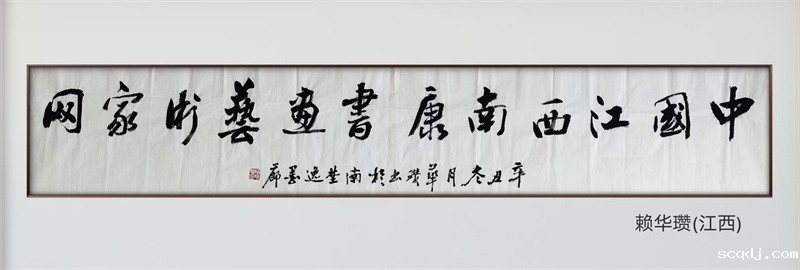 中國江西南康書畫藝術家网
辛丑冬月華瓒书於南埜逸墨
赖华瓒(江西)
scqdj.com